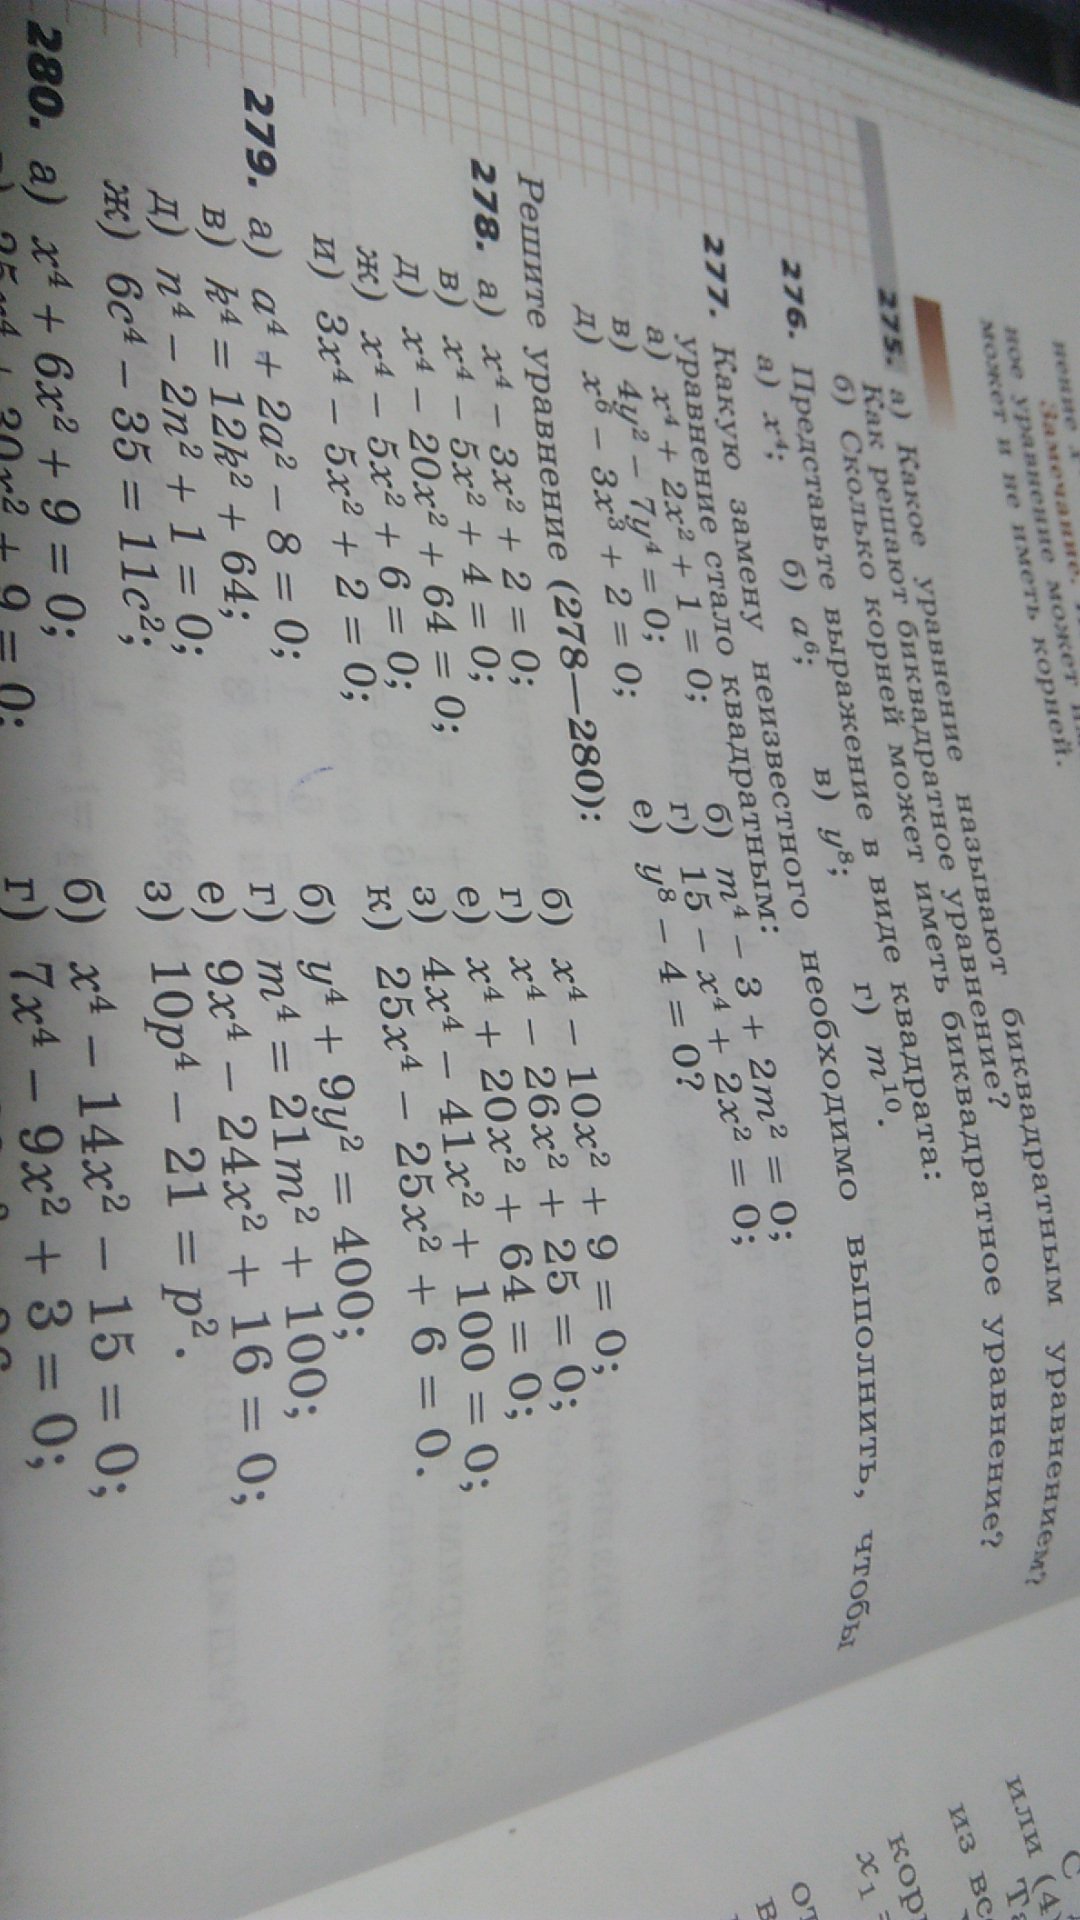 Замечание.
ное уравнение может
может и не иметь корней.
275. а) Какое уравнение называют биквадратным уравнением?
Как решают биквадратное уравнение?
б) Сколько корней может иметь биквадратное уравнение?
276. Представьте выражение в виде квадрата:
а) x⁴; б) a⁶; в) y⁸; г) m¹⁰.
277. Какую замену неизвестного необходимо выполнить, чтобы
уравнение стало квадратным:
а) x⁴ + 2x² + 1 = 0; б) m⁴ − 3 + 2m² = 0;
в) 4y² − 7y⁴ = 0; г) 15 − x⁴ + 2x² = 0;
д) x⁶ − 3x³ + 2 = 0; е) y⁸ − 4 = 0?
Решите уравнение (278—280):
278. а) x⁴ − 3x² + 2 = 0; б) x⁴ − 10x² + 9 = 0;
в) x⁴ − 5x² + 4 = 0; г) x⁴ − 26x² + 25 = 0;
д) x⁴ − 20x² + 64 = 0; е) x⁴ + 20x² + 64 = 0;
ж) x⁴ − 5x² + 6 = 0; з) 4x⁴ − 41x² + 100 = 0;
и) 3x⁴ − 5x² + 2 = 0; к) 25x⁴ − 25x² + 6 = 0.
279. а) a⁴ + 2a² − 8 = 0; б) y⁴ + 9y² = 400;
в) k⁴ = 12k² + 64; г) m⁴ = 21m² + 100;
д) n⁴ − 2n² + 1 = 0; е) 9x⁴ − 24x² + 16 = 0;
ж) 6c⁴ − 35 = 11c²; з) 10p⁴ − 21 = p².
280. а) x⁴ + 6x² + 9 = 0; б) x⁴ − 14x² − 15 = 0;
г) 7x⁴ − 9x² + 3 = 0;
или (4)
из
x₁ =